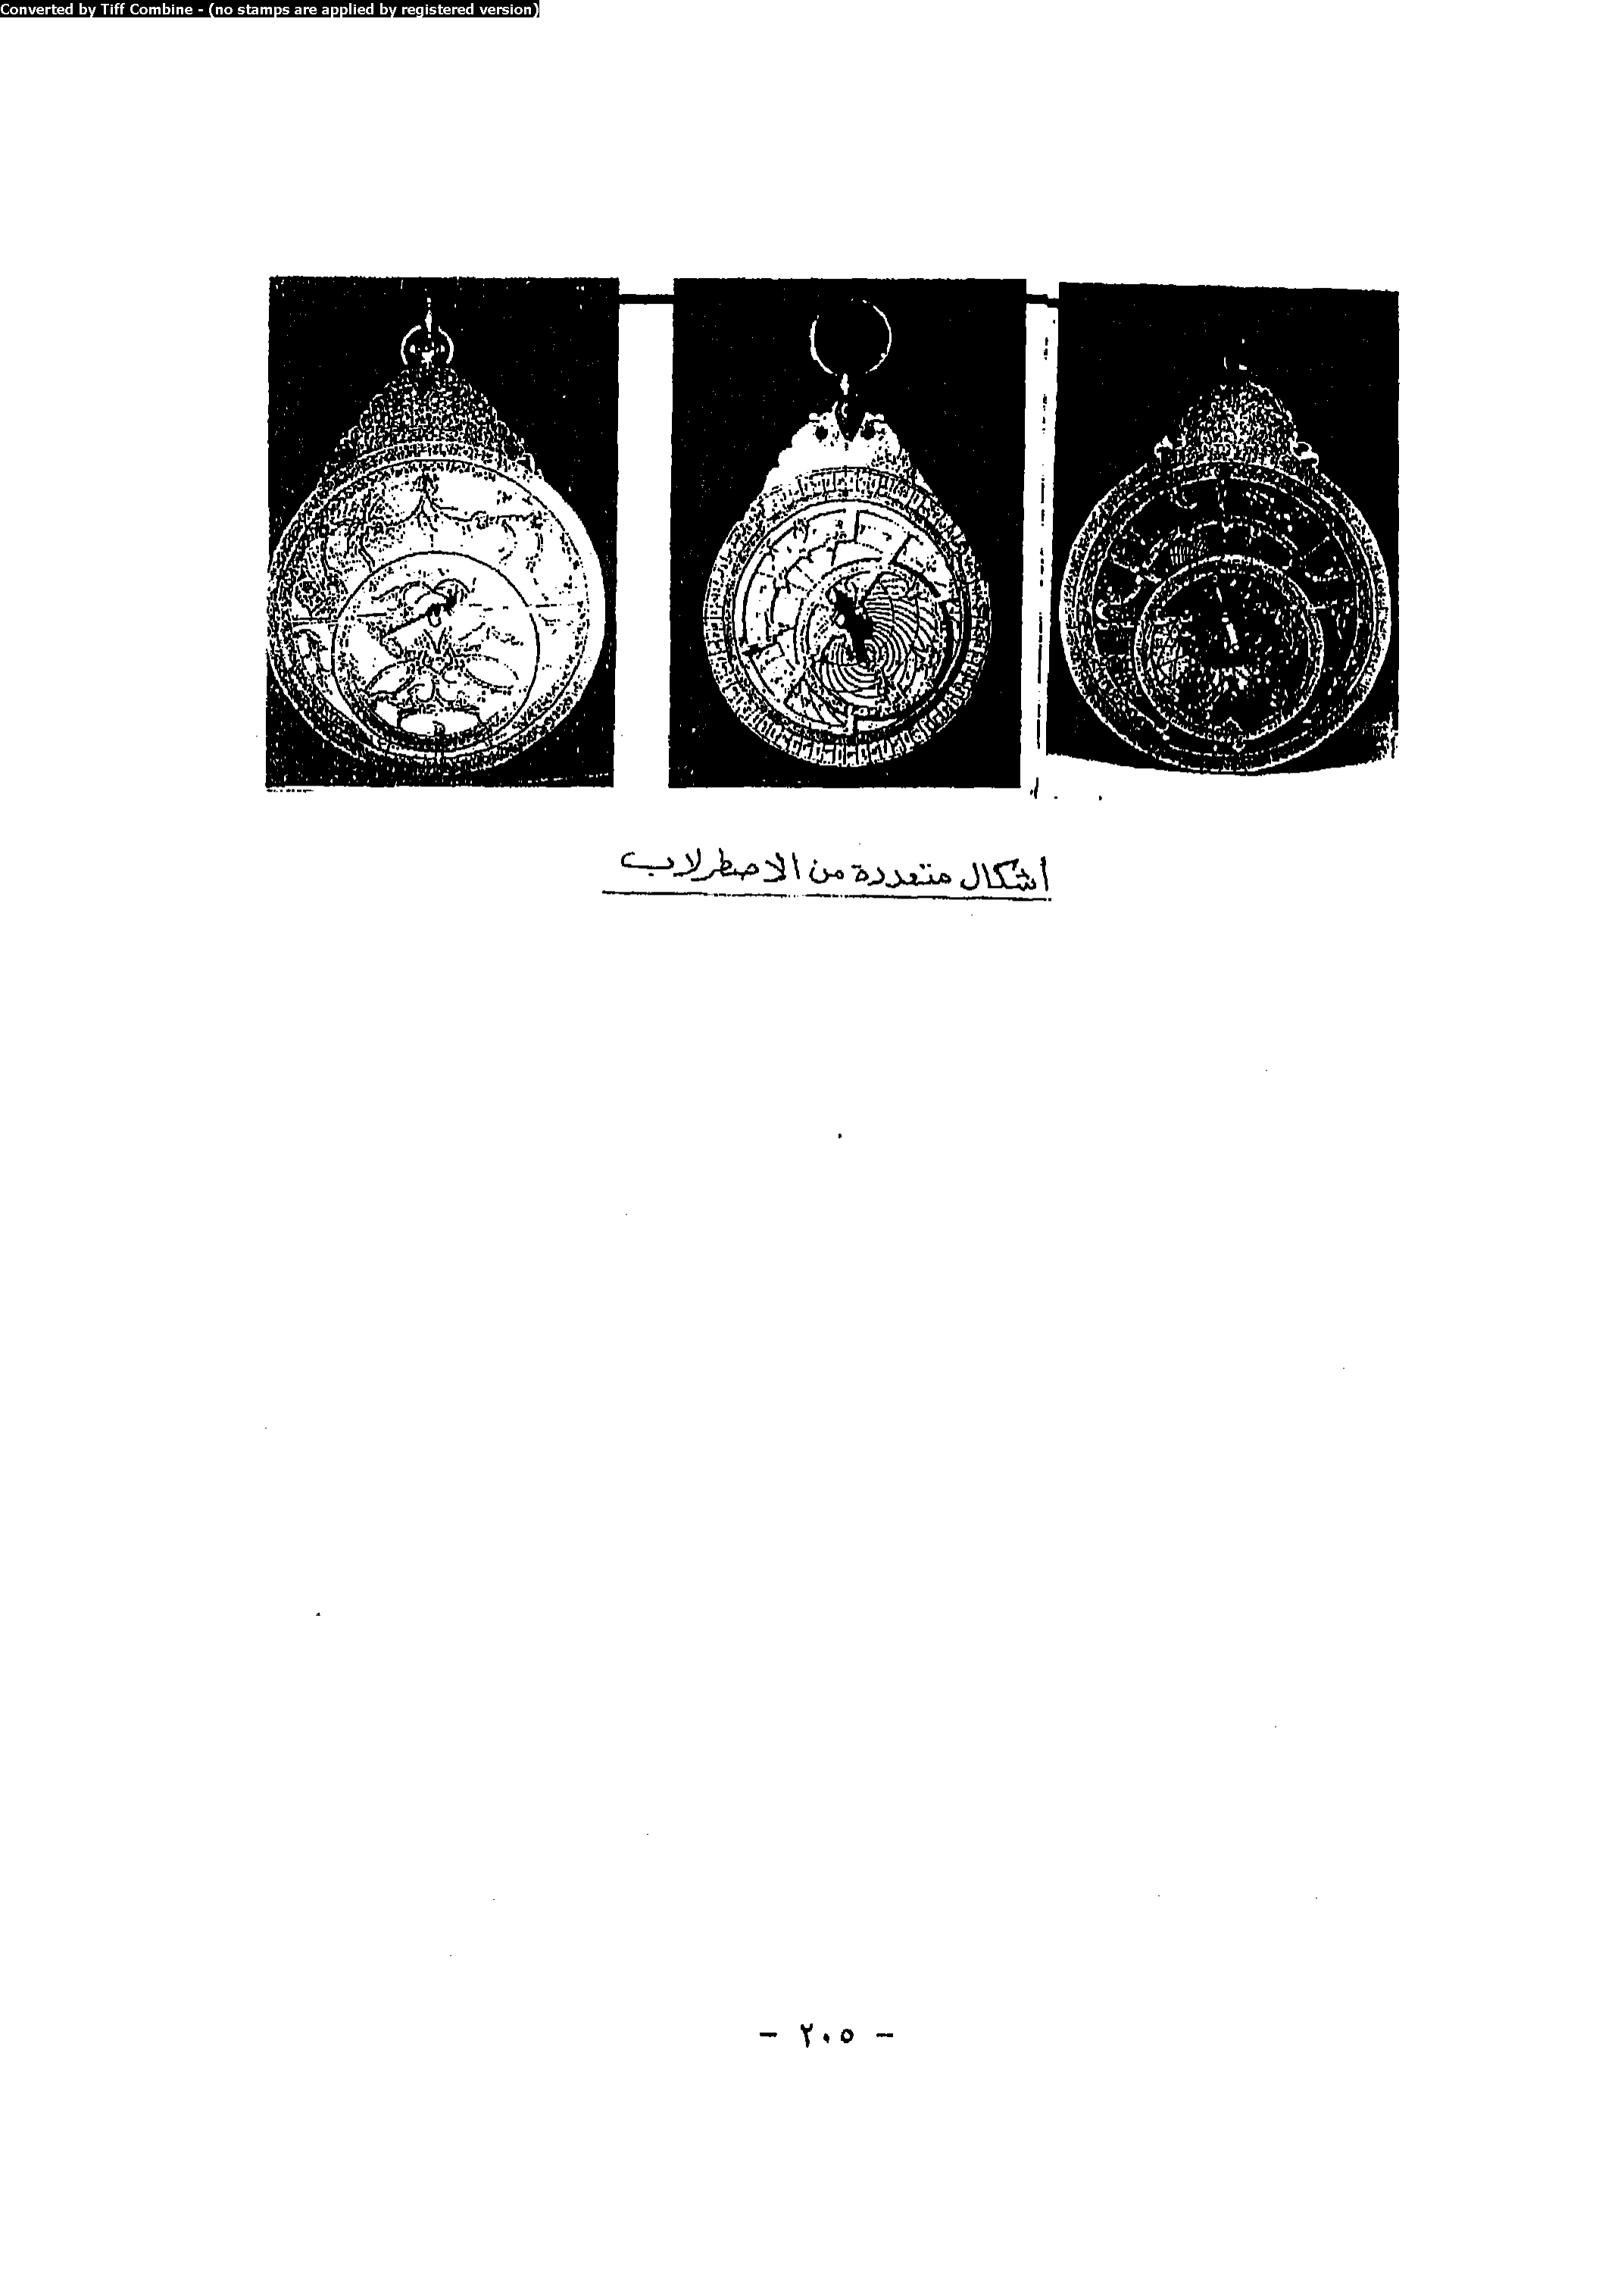 Converted by Tiff Combine - (no stamps are applied by registered version)
أشكال متعددة من الاصطرلاب
- ٢٠٥ -